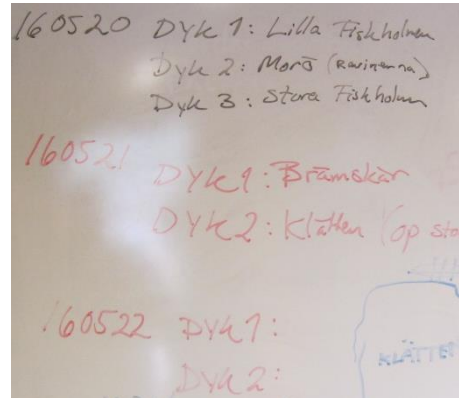 160520 Dyk 1: Lilla Fiskholmen
Dyk 2: Morö (Ravinerna)
Dyk 3: Stora Fiskholmen
160521
DYK1: Brämskär
DYK2: Klätten (op sto
160522 DYK1:
KLÄTTEN
DYK2: